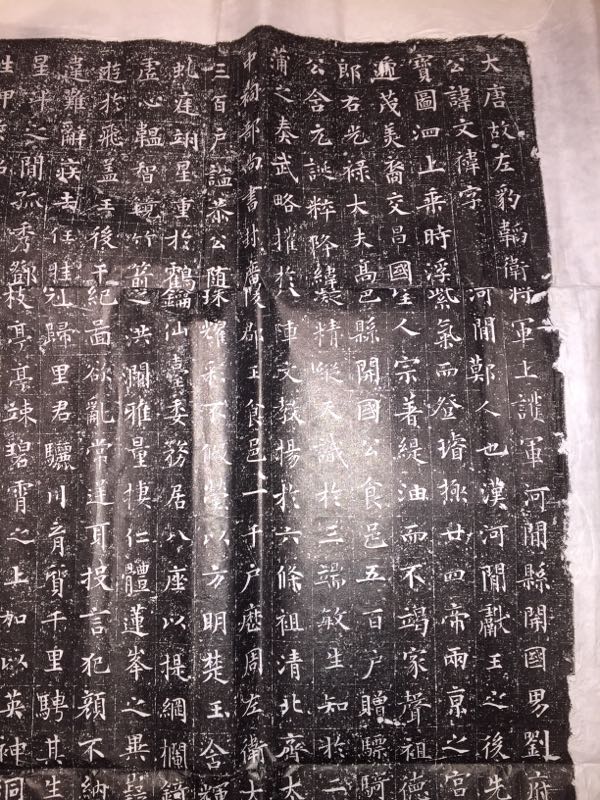 大唐故左豹韜衛將軍上護軍河間縣開國男劉府
公諱文禕字 河間鄭人也漢河間獻王之後先
寶圖泗上乘時浮紫氣而登璿極廿四帝兩京之宮
遞茂美裔交昌國生人宗著緹油而不竭家聲祖德
郎右光祿大夫高邑縣開國公食邑五百戶贈驃騎
公含元誕粹降緯裒精縱天識於三端敏生知於二
蒲之奏武略擢於八陣文教揚於六條祖清北齊太
中祠部尚書封廣陵郡王食邑一千戶歷周左衛大
三百戶謚恭公隨珠耀彩不假瑩以方明楚玉含輝
虬庭翊星重於鶴鑰仙臺委務居八座以提綱蘭錡
虛心韞智鏡竹箭之洪瀾雅量摟仁體蓮峯之異
遊於飛蓋王後干紀啚欲亂常逆耳投言犯顏不納
違難辭疾去任歸里君驪川育質千里騁其生
星斗之間孤秀鄧枝亭亭竦碧霄之上加以英神洞
生甲